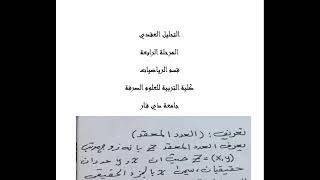 التحليل العقدي
المرحلة الرابعة
قسم الرياضيات
كلية التربية للعلوم الصرفة
جامعة ذي قار
تعريف: (العدد المعقد)
يعرف العدد المعقد Z بأنه زوج مرتب
Z=(x,y) حيث ان x و y عددان
حقيقيان، يسمى x بالجزء الحقيقي